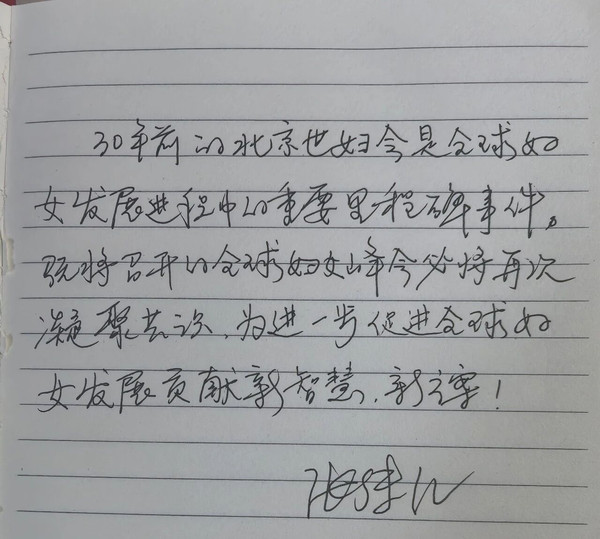 30年前的北京世妇会是全球妇
女发展进程中的重要里程碑事件。
现将召开的全球妇女峰会必将再次
凝聚共识,为进一步促进全球妇
女发展贡献新智慧,新方案!